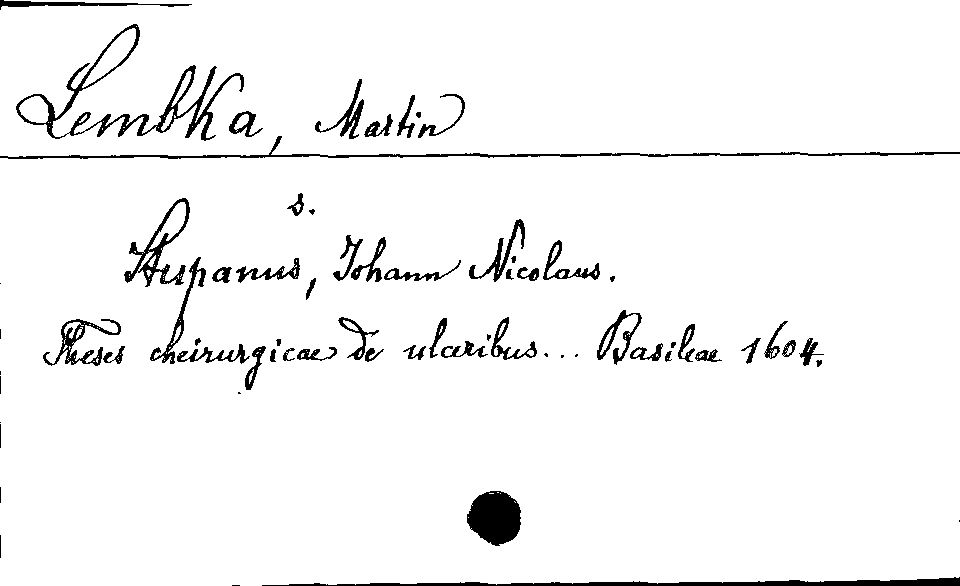 Lembka, Martin
s.
Stupanus, Johann Nicolaus.
Theses cheirurgicae de ulceribus... Basileae 1604.